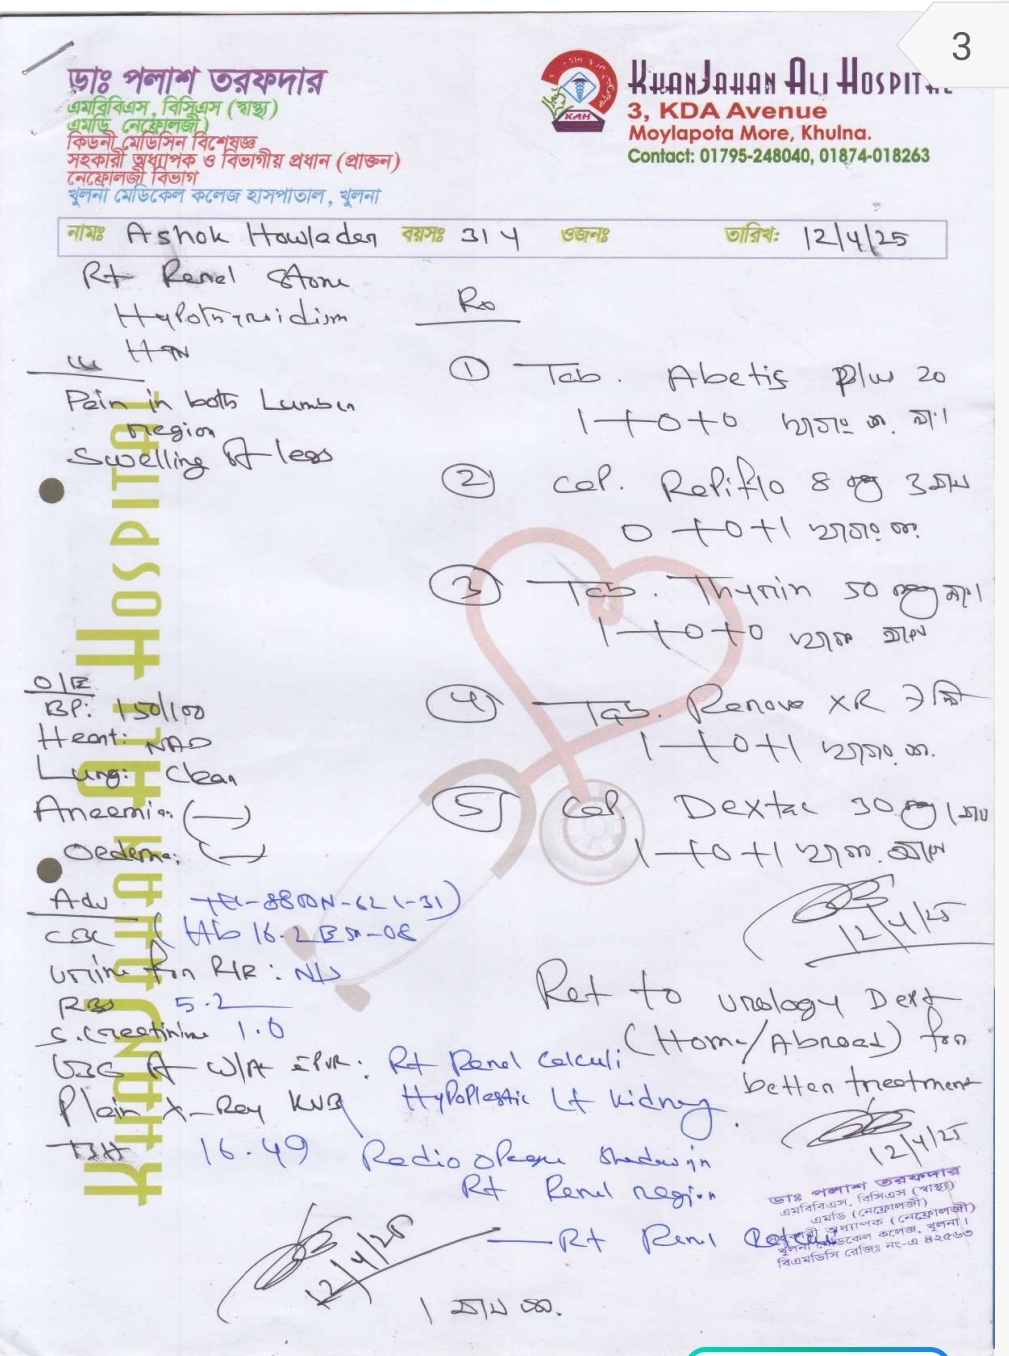 3
ডাঃ পলাশ তরফদার
এমবিবিএস, বিসিএস (স্বাস্থ্য)
এমডি নেফ্রোলজী)
কিডনী মেডিসিন বিশেষজ্ঞ
সহকারী অধ্যাপক ও বিভাগীয় প্রধান (প্রাক্তন)
নেফ্রোলজী বিভাগ
খুলনা মেডিকেল কলেজ হাসপাতাল, খুলনা
KHANJAHAN ALI HOSPITAL
KAH
3, KDA Avenue
Moylapota More, Khulna.
Contact: 01795-248040, 01874-018263
নামঃ Ashok Howlader বয়সঃ 31 y ওজনঃ তারিখ: 12/4/25
Rt Renal Stone
Hypothyroidism
HTN
Pain in both Lumber
region
Swelling of legs
O/E
BP: 150/100
Heart: NAD
Lung: Clear
Anaemia: (—)
Oedema: (—)
Adv
CBC (Hb 16.2
Urine for R/E:
RBS 5.2
S. Creatinine 1.0
USG of W/A PVR: Rt Renal Calculi
Hypoplastic Lt kidney.
Plain X-Ray KUB
TSH 16.49
Radio opaque Shadow in
Rt Renal region
— Rt Renal
Rx
① Tab. Abetis plus 20
1+0+0
② Cap. Reliflo 8
0+0+1
③ Tab. Thyrin 50
1+0+0
④ Tab. Renove XR
1+0+1
⑤ Cap. Dextac 30
1+0+1
12/4/25
Ref to urology Dept
(Home/Abroad) for
better treatment
12/4/25
ডাঃ পলাশ তরফদার
এমবিবিএস, বিসিএস (স্বাস্থ্য)
এমডি (নেফ্রোলজী)
সহকারী অধ্যাপক (নেফ্রোলজী)
খুলনা মেডিকেল কলেজ, খুলনা।
বিএমডিসি রেজিঃ নং-এ ৪২৫৬৩
12/4/25
KHANJAHAN ALI HOSPITAL